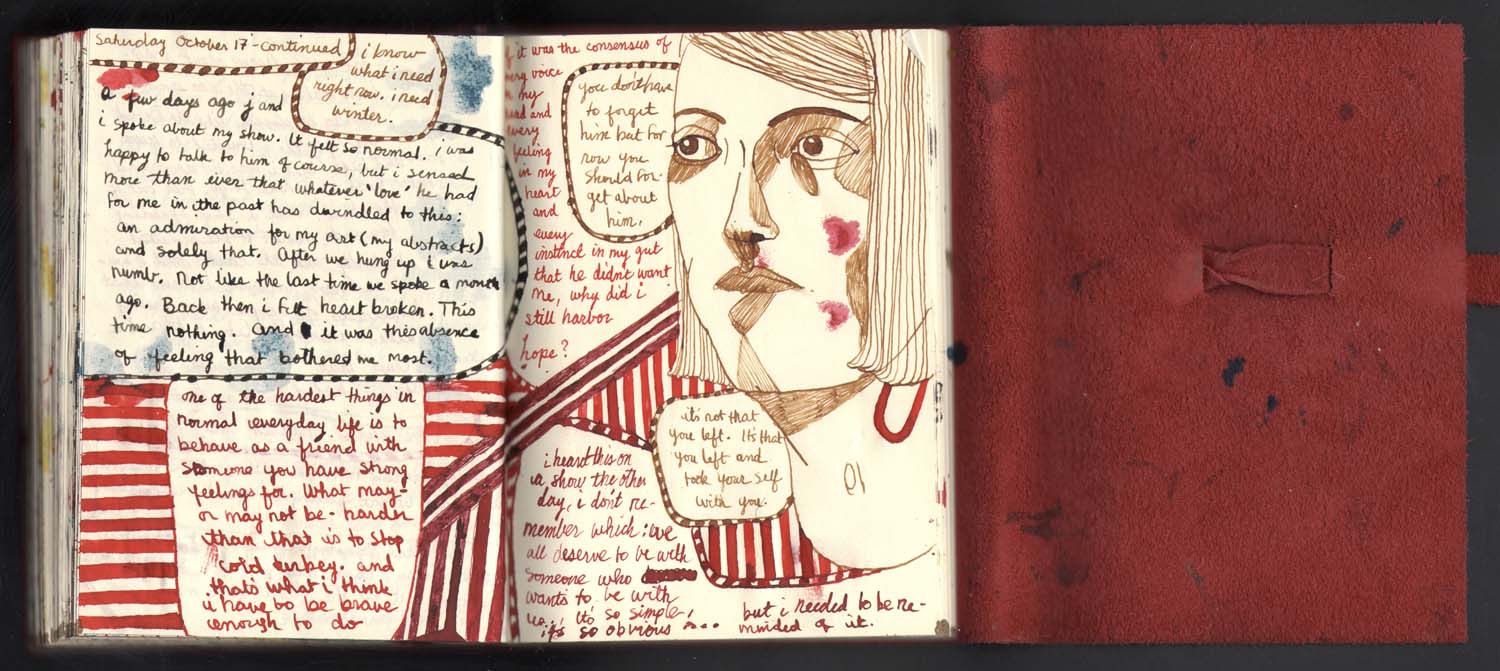 Saturday October 17 - continued
i know
what i need
right now. i need
winter.
a few days ago j and
i spoke about my show. It felt so normal. i was
happy to talk to him of course, but i sensed
more than ever that whatever 'love' he had
for me in the past has dwindled to this:
an admiration for my art (my abstracts)
and solely that. After we hung up i was
numb. Not like the last time we spoke a month
ago. Back then i felt heart broken. This
time nothing. and it was this absence
of feeling that bothered me most.
one of the hardest things in
normal everyday life is to
behave as a friend with
someone you have strong
feelings for. What may-
or may not be - harder
than that is to stop
cold turkey. and
that's what i think
i have to be brave
enough to do
if it was the consensus of
every voice
in my
head and
every
feeling
in my
heart
and
every
instinct in my gut
that he didn't want
me, why did i
still harbor
hope?
you don't have
to forget
him but for
now you
should for-
get about
him.
it's not that
you left. It's that
you left and
took your self
with you.
i heard this on
a show the other
day, i don't re-
member which: we
all deserve to be with
someone who
wants to be with
us. It's so simple,
it's so obvious ...
but i needed to be re-
minded of it.